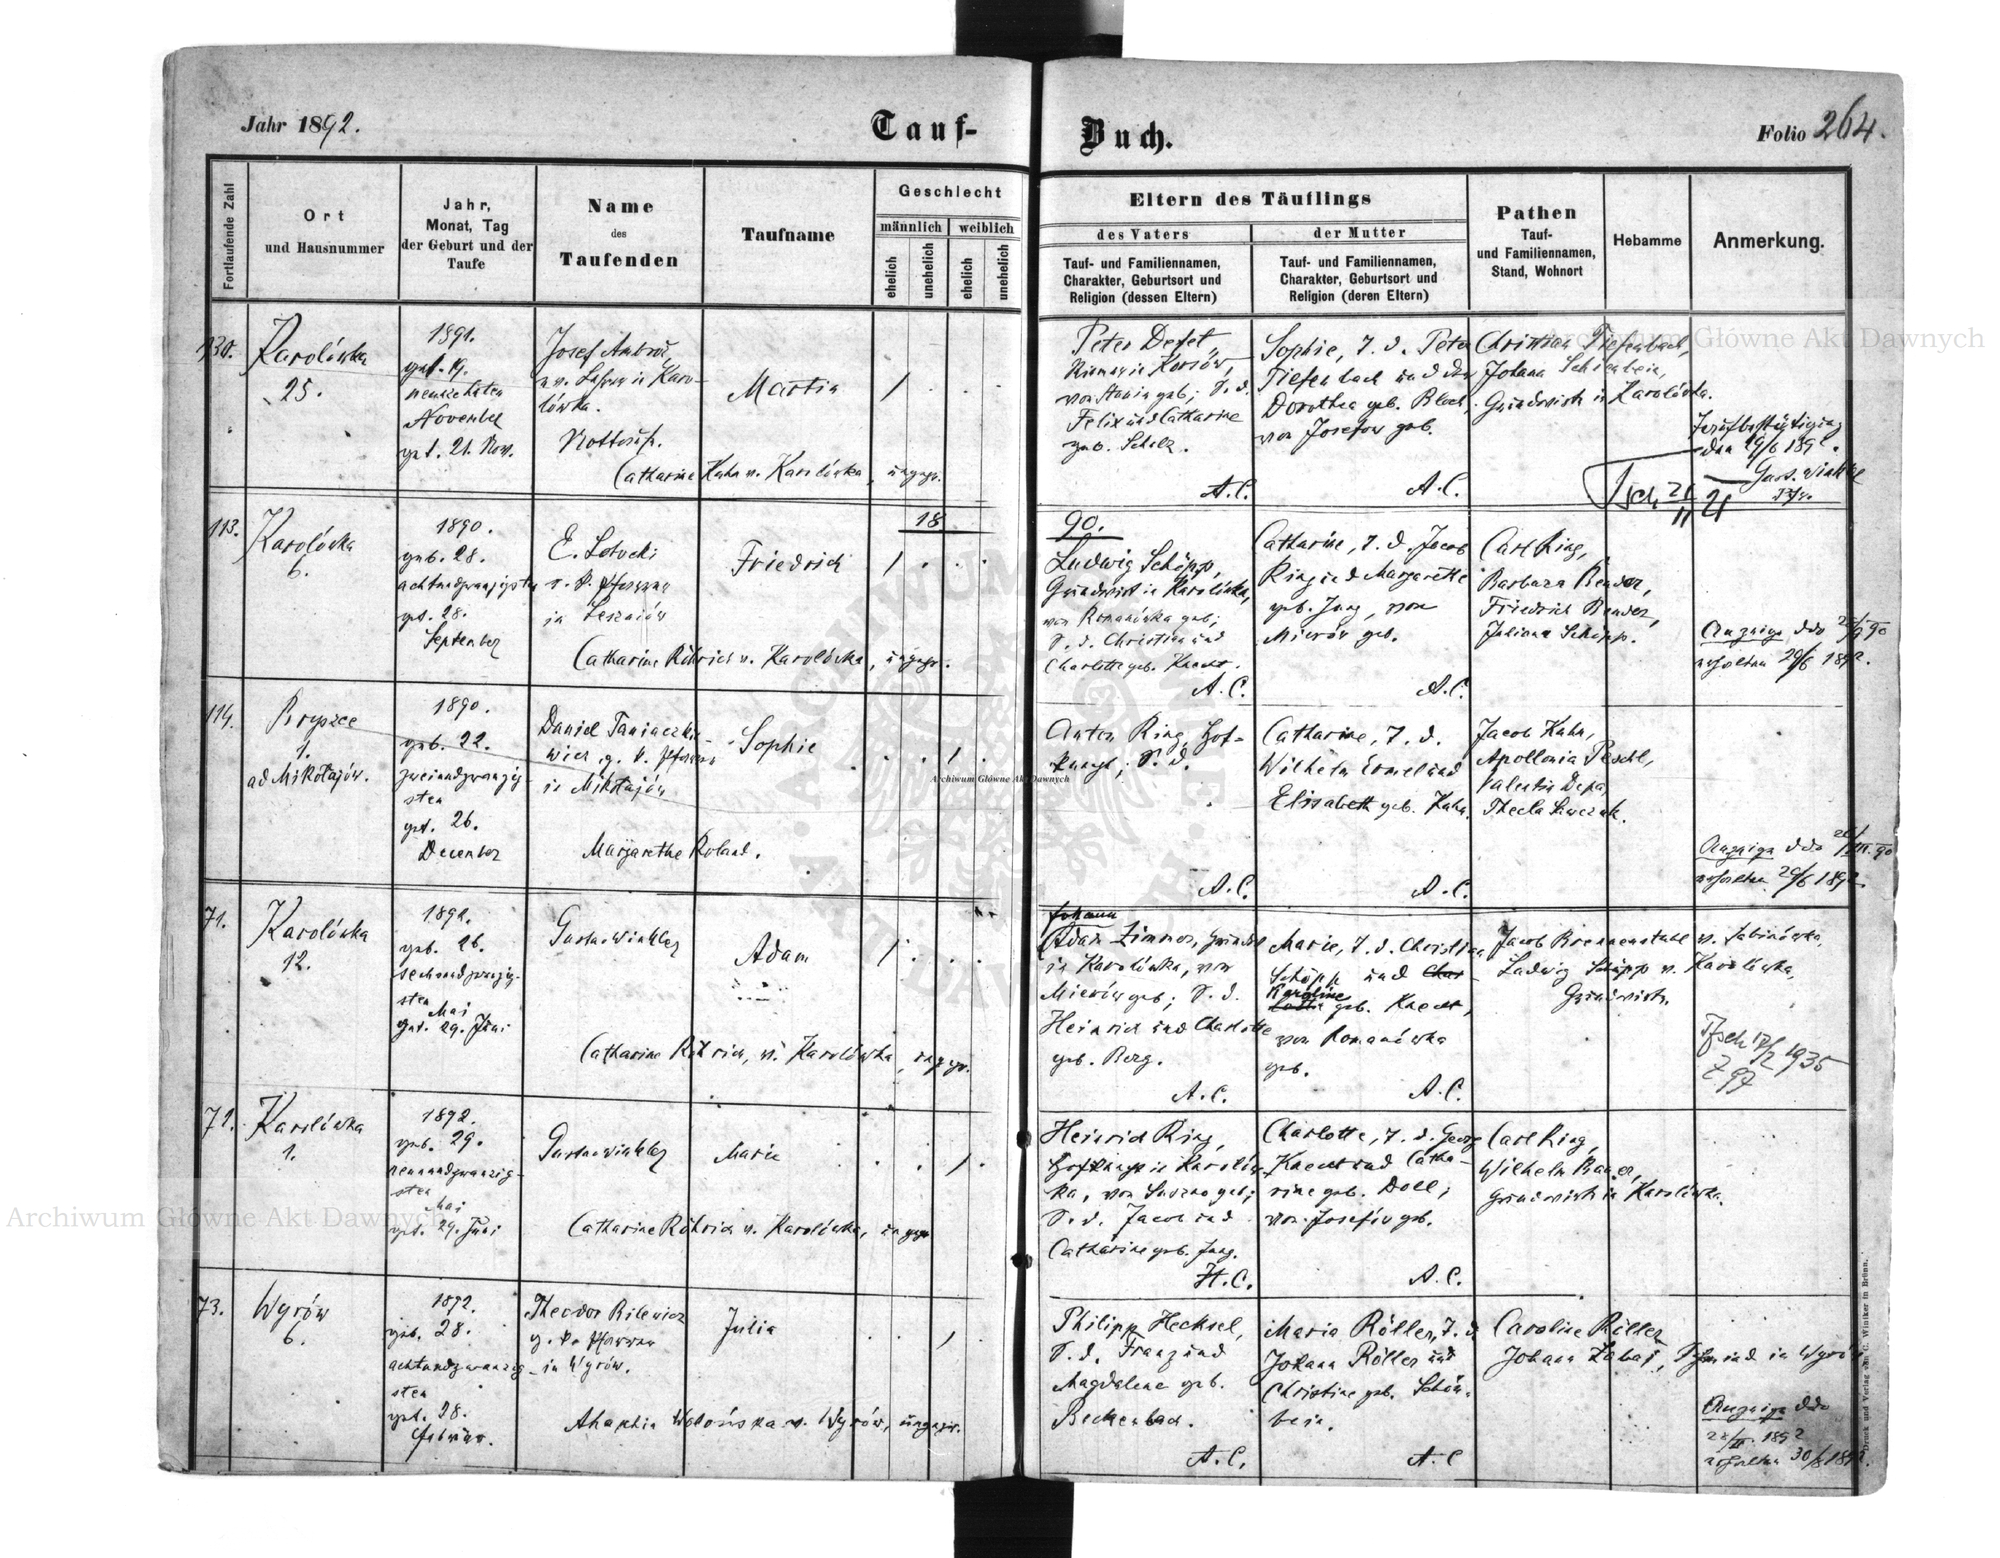 Jahr 1892.
Tauf-
Buch.
Folio 264.
Fortlaufende Zahl
Ort
und Hausnummer
Jahr,
Monat, Tag
der Geburt und der
Taufe
Name
des
Taufenden
Taufname
Geschlecht
männlich
weiblich
ehelich
unehelich
ehelich
unehelich
Eltern des Täuflings
des Vaters
Tauf- und Familiennamen,
Charakter, Geburtsort und
Religion (dessen Eltern)
der Mutter
Tauf- und Familiennamen,
Charakter, Geburtsort und
Religion (deren Eltern)
Pathen
Tauf-
und Familiennamen,
Stand, Wohnort
Hebamme
Anmerkung.
130.
Karolówka
25.
1891.
get. 19.
neunzehnten
November
get. 21. Nov.
Josef
in Karo-
lówka.
Nottauf.
Martin
Catharine Kuhn v. Karolówka, ungepr.
Peter
Felix und Catharine
geb. Scholz.
A.C.
Sophie, T. d. Peter
Tiefenbach und der
Dorothea geb. Bloch,
von Josefow geb.
A.C.
Christian Tiefenbach,
Johann Schienbein,
Grundwirth in Karolówka.
den 19/6 189
Gust. Winkler
Pfr.
113.
Karolówka
6.
1890.
geb. 28.
achtundzwanzigsten
get. 28.
September
E. Lotocki
r. k. Pfarrer
in Leszniów
Friedrich
Catharine Röhrich v. Karolówka, ungepr.
18
90.
Ludwig Schöpp,
Grundwirth in Karolówka,
von Romanówka geb;
S. d. Christian und
Charlotte geb. Knecht.
A.C.
Catharine, T. d. Jacob
Ring und Margarethe
geb. Jung, von
Mierów geb.
A.C.
Carl Ring,
Barbara Bender,
Friedrich Bender,
Juliana Schöpp.
Anzeige ddo
erhalten 29/6 1892.
114.
1.
ad Mikołajów.
1890.
geb. 22.
zweiundzwanzig-
sten
get. 26.
December
Daniel Taniaczkie-
wicz g. k. Pfarrer
in Mikołajów
Sophie
Margarethe Roland.
Anton Ring, Hof-
knecht; S. d.
A.C.
Catharine, T. d.
Wilhelm Ermel und
Elisabeth geb. Kuhn.
A.C.
Jacob Kuhn,
Apollonia Peschl,
Valentin Depa,
Thecla
Anzeige ddo
erhalten 29/6 1892.
71.
Karolówka
12.
1892.
geb. 26.
sechsundzwanzig-
sten
Mai
get. 29. Juni
Gustav Winkler
Adam
Catharine Röhrich, v. Karolówka, ungepr.
Johann
Adam Zimmer, Grundwirth
in Karolówka, von
Mierów geb; S. d.
Heinrich und Charlotte
geb. Berg.
A.C.
Marie, T. d. Christian
Schöpp und
Karoline
geb. Knecht,
von Romanówka
geb.
A.C.
Jacob Brennenstuhl v. Sabinówka,
Ludwig Schöpp v. Karolówka,
Grundwirth.
Tfsch 17/2 1935
Z 97
72.
Karolówka
1.
1892.
geb. 29.
neunundzwanzig-
sten
Mai
get. 29. Juni
Gustav Winkler
Marie
Catharine Röhrich v. Karolówka, ungepr
Heinrich Ring,
Hofknecht in Karolów-
ka, von
S. d. Jacob und
Catharine geb. Jung.
H.C.
Charlotte, T. d. Georg
Knecht und Catha-
rine geb. Doll;
von Josefów geb.
A.C.
Carl Ring,
Wilhelm Bauer,
Grundwirth in Karolówka.
73.
Wyrów
6.
1892.
geb. 28.
achtundzwanzig-
sten
get. 28.
Februar.
Theodor Bilewicz
g. k. Pfarrer
in Wyrów.
Julia
Ahaphia Wołońska v. Wyrów, ungepr.
Philipp Hechsel,
S. d. Franz und
Magdalene geb.
Beckenbach.
A.C.
Maria Röller, T. d.
Johann Röller und
Christine geb. Schön-
bein.
A.C
Caroline Röller
Johann Zabaj, Schmied in Wyrów
Anzeige ddo
1892
erhalten 30/6 1892.
Druck und Verlag von C. Winiker in Brünn.
Archiwum Główne Akt Dawnych
Archiwum Główne Akt Dawnych
Archiwum Główne Akt Dawnych